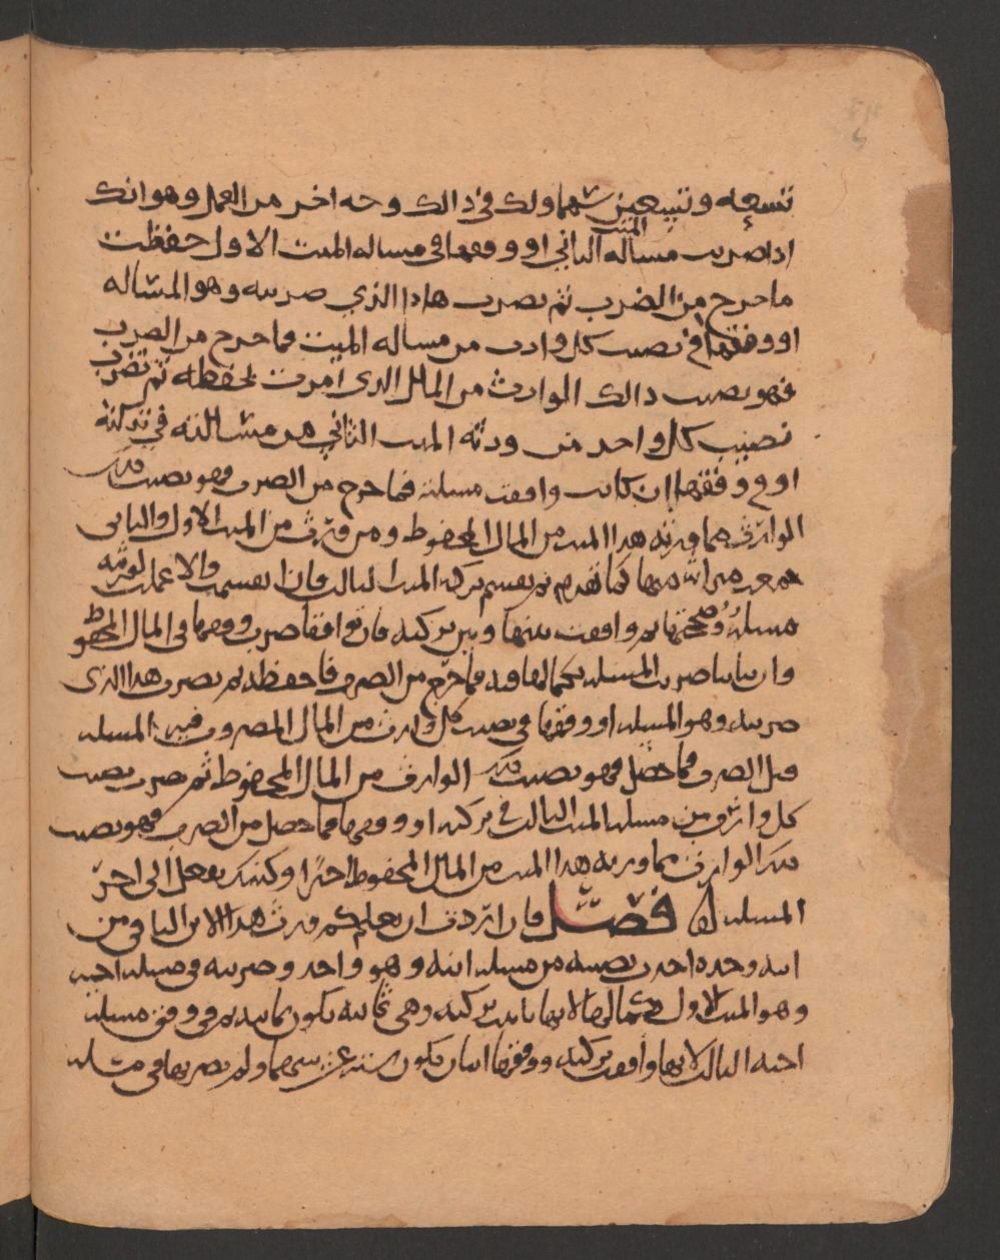 تسعه وتسعين سهما ولك في ذالك وجه اخر من العمل وهو انك
اذا ضربت مسأله الميت الثاني او وفقها في مساله الميت الاول حفظت
ما خرج من الضرب ثم تضرب هاذا الذي ضربته وهو المسأله
او وفقها في نصيب كل وارث من مساله الميت فما خرج من الضرب
فهو نصيب ذالك الوارث من المال الذي امرت بحفظه ثم تضرب
نصيب كل واحد من ورثه الميت الثاني من مسالته في تركته
او في وفقها ان كانت وافقت مسلته فما خرج من الضرب فهو نصيب ذلك
الوارث مما ورثه هذا الميت من المال المحفوظ ومن ورث من الميت الاول والثاني
جمعت ميراثه منهما كما تقدم ثم تقسم تركه الميت الثالث فان انقسمت والا عملت لورثته
مسلة وصححتها ثم وافقت بينها وبين تركته فان توافقا ضربت وفقها في المال المحفوظ
وان تباينا ضربت المسله بكمالها فيه فما خرج من الضرب فاحفظه ثم تضرب هذا الذي
ضربته وهو المسله او وفقها في نصيب كل وارث من المال المضروب فيه المسله
قبل الضرب فما حصل فهو نصيب ذلك الوارث من المال المحفوظ ثم تضرب نصيب
كل وارث من مسله الميت الثالث في تركته او وفقها فما حصل من الضرب فهو نصيب
ذلك الوارث مما ورثه هذا الميت من المال المحفوظ اخيرا وكذلك تفعل الى اخر
المسله فصل فان اردت ان تعلم كم ورث هذا الابن الباقي من
ابيه وحده اخذت نصيبه من مسله ابيه وهو واحد وضربته في مسله اخيه
وهو الميت الاول بكمالها لانها باينت تركته وهي ثمانيه يكون ثمانيه ثم في وفق مسله
اخيه الثالث لانها وافقت تركته ووفقها اثنان يكون سته عشر سهما ولم تضربها في مسله